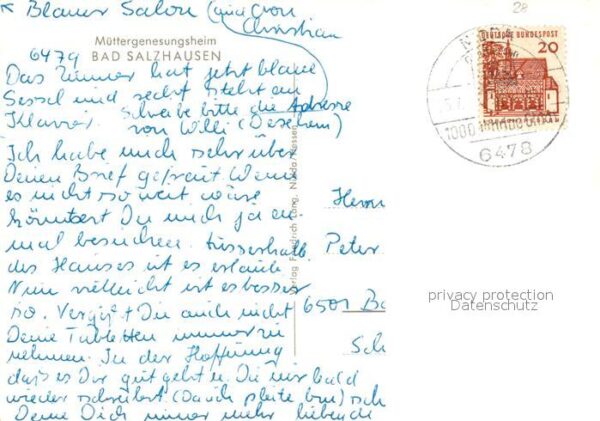 Blauer Salon (
Christian
28
Müttergenesungsheim
BAD SALZHAUSEN
6479
DEUTSCHE BUNDESPOST
20
6478
Das Zimmer hat jetzt blaue
Sessel und rechts steht ein
Klavier. Schreibe bitte die Adresse
von Willi
Ich habe mich sehr über
Deinen Brief gefreut Wenn
es nicht so weit wäre
könntest Du mich ja ein-
mal besuchen. Ausserhalb
des Hauses ist es erlaubt.
Nun vielleicht ist es besser
so. Vergißt Du auch nicht
Deine Tabletten immer zu
nehmen. In der Hoffnung
dass es Dir gut geht u. Du mir bald
wieder schreibst (Da ich pleite bin)
Deine Dich immer mehr liebende
Verlag Friedrich Lang,
Herrn
Peter
6501 Bo
Sch
privacy protection
Datenschutz